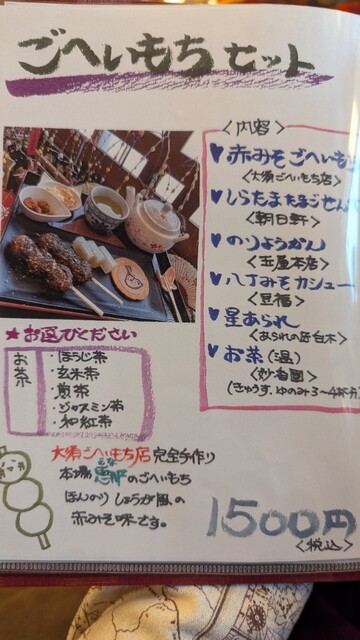 ごへいもちセット
<内容>
♥赤みそごへいも
<大須ごへいもち店>
♥しらたまたまごせん
<朝日軒>
♥のりようかん
<玉屋本店>
♥八丁みそカシュー
<豆福>
♥星あられ
<あられの匠白木>
♥お茶(温)
<妙香園>
(きゅうす、ゆのみ3〜4杯分
★お選びください
お茶
・ほうじ茶
・玄米茶
・煎茶
・ジャスミン茶
・和紅茶
大須ごへいもち店完全手作り
本場恵那のごへいもち
えな
ほんのりしょうが風の
赤みそ味です。
1500円
<税込>